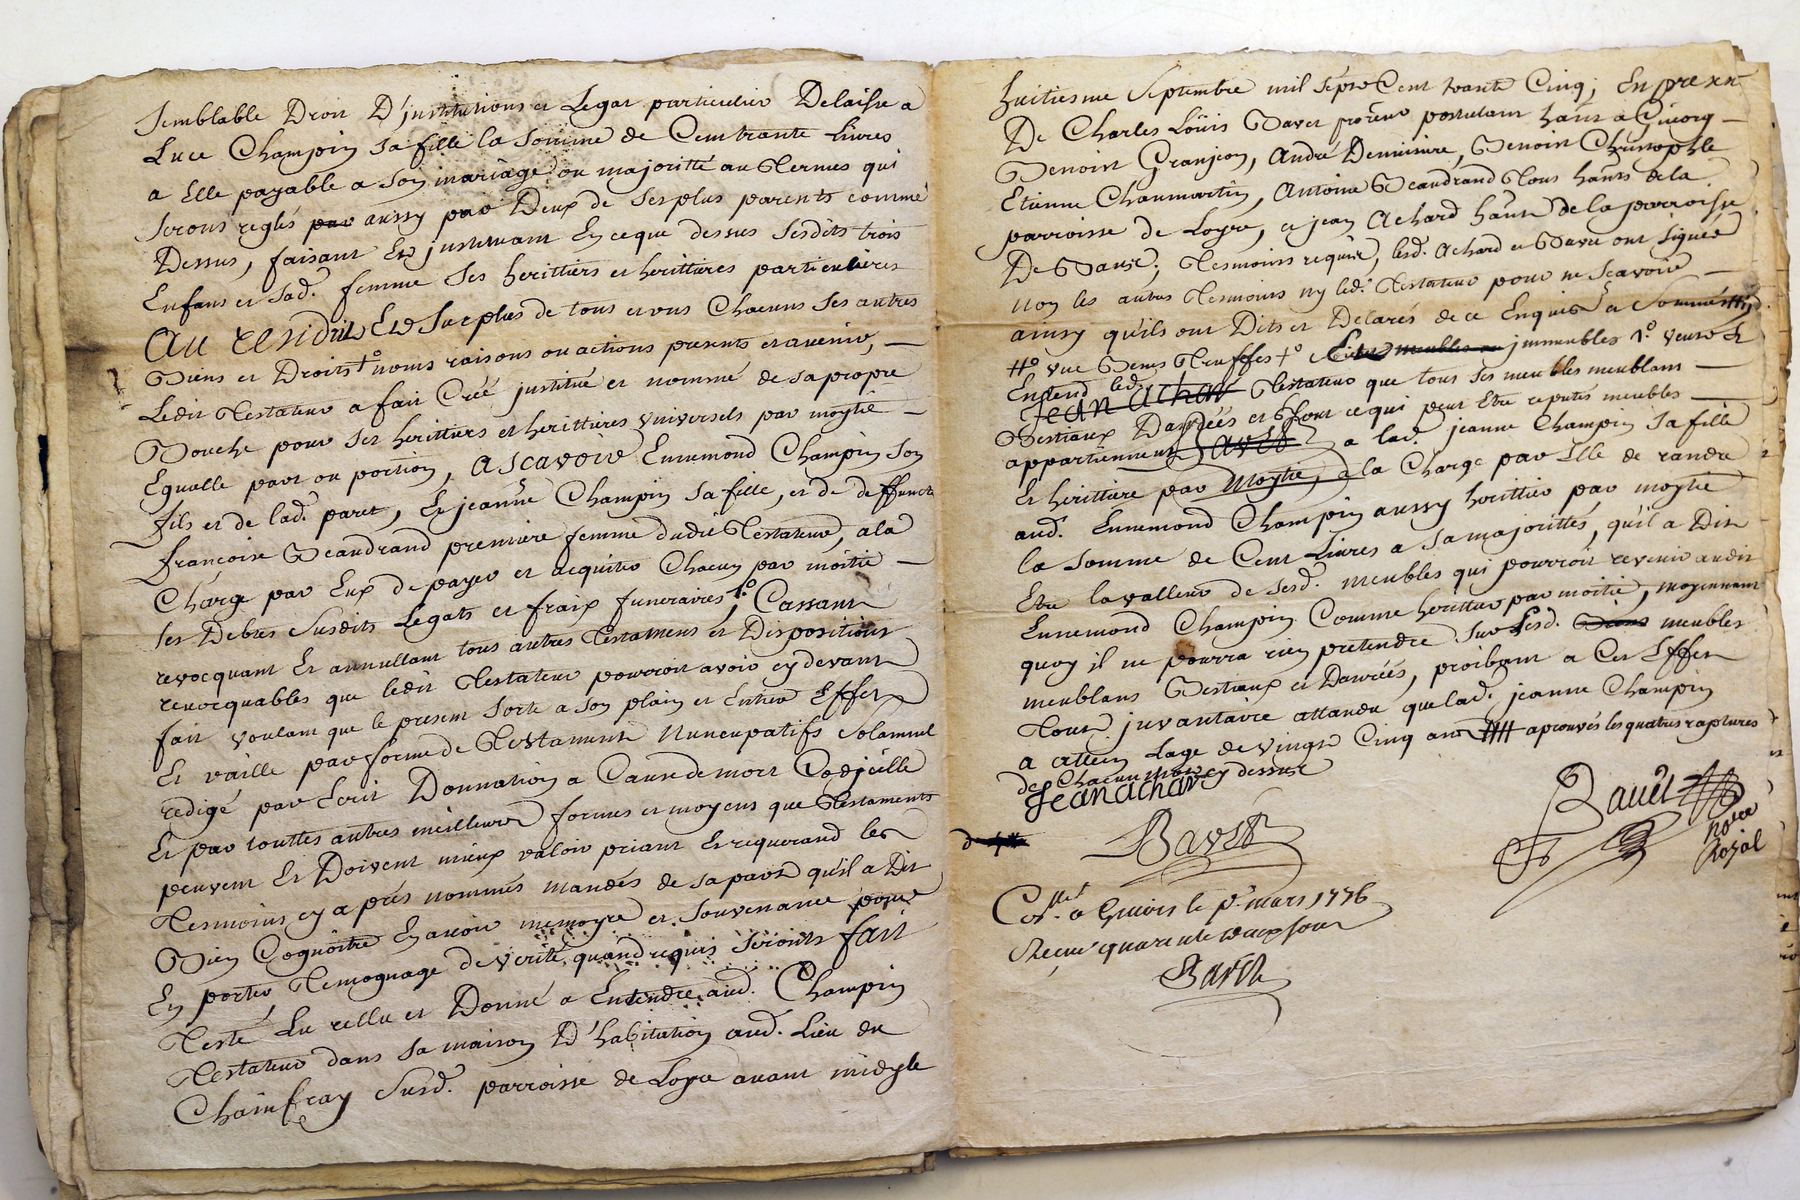 Semblable Droit D'institutions et Legat particulier Delaisse a
Luce Champin sa fille la somme de Cent trante Livres
a Elle payable a son mariage ou majoritté au Termes qui
seronts reglés par aussy par Deux de ses plus parents comme
Dessus, faisant Et jnstituant En ce que dessus sesdits trois
Enfans et sad. femme ses herittiers et herittieres particulieres
Au residu Et Surplus de tous et uns Chacuns ses autres
Biens et Droits noms raisons ou actions presents et avenir,
Ledit Testateur a fait Créé justitué et nommé de sa propre
Bouche pour ses herittiers et herittieres vniversels par moytié
Equalle part ou portion, Ascavoir Ennemond Champin son
fils et de lad. paret, Et jeanne Champin sa fille, et de deffuncte
françoise Beaudrand premiere femme dudit Testateur, ala
Charge par Eux de payer et acquiter Chacun par moitié
les Debtes Susdits Legats et fraix funeraires, Cassant
revocquant Et annullant tous autres Testaments et Dispositions
revocquables que ledit Testateur pourroit avoir cy devant
fait voulant que le present sorte a son plain et Entier Effet
Et vaille par forme de Testament Nuncupatifs Solamnel
redigé par Ecrit Donnation a Cause de mort Codjcille
Et par touttes autres meilleures formes et moyens que Testaments
peuvent Et Doivent mieux valoir priant Et requerand les
Tesmoins cy a prés nommés mandés de sa part qu'il a Dit
Bien Cognoître En avoir memoyre et Souvenance pour
En porter Temognage de verité quand requis Seronts fait
Testé Lu rellu et Donné a Entendre aud. Champin
Testateur dans sa maison D'habitation aud. Lieu du
Chainfray Susd. parroisse de Loyre avant midy le
huitiesme Septembre mil sept Cent trante Cinq, En presen
De Charles Loüis Bavet postulant à
Benoist Granjeon, André, Benoist Christophle
Etienne Chanmartin, Antoine Beaudrand Tous hants dela
parroisse de Loyre, et jean Achard hant de la parroisse
De, Tesmoins requis, lesd. Achard et Bavet ont signée
non les autres Tesmoins ny led. Testateur pour ne Scavoir
ainsy qu'ils ont Dits et Delarés de ce Enquis et Sommés
vue Truffes meubles jmmeubles
Entend led. Testateur que tous ses meubles meublans
Jean achar
Bestiaux Danrées et Tout ce qui peut Etre reputés meubles
appartiennent Bavet a lad. jeanne Champin sa fille
Et herittiere par moytié, a la Charge par Elle de randre
aud. Ennemond Champin aussy herittier par moytié
la somme de Cent Livres a sa majorittés, qu'il a Dit
Etre la valleur de sesd. meubles qui pourroit revenir audit
Ennemond Champin Comme herittier par moitié, moyennant
quoy il ne pourra rien pretendre sur Lesd. Biens meubles
meublans Bestiaux et Danrées, proibant a Cet Effet
Tout juvantaire attandu que lad. jeanne Champin
a attein Lage de vingt Cinq ans aprouvés les quatres raptures
de Chacun cy dessus
Jean achar
Bavet
Bavet
Nore
Royal
Con. a le pr. mars 1736
Recu quarante
Bavet